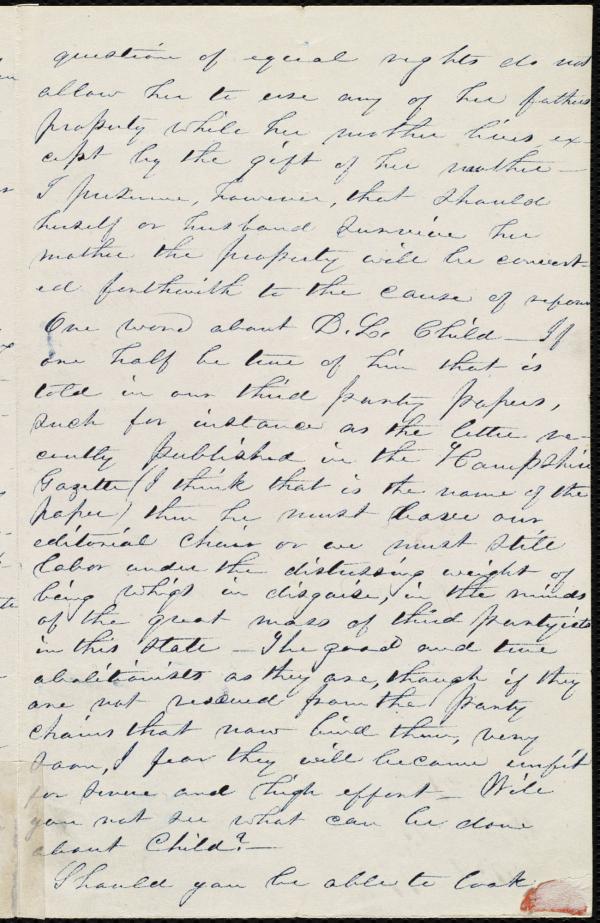 question of equal rights do not
allow her to use any of her fathers
property while her mother lives ex-
cept by the gift of her mother —
I presume, however, that should
herself or husband survive her
mother the property will be convert-
ed forthwith to the cause of reform
One word about D. L. Child — If
one half be true of him that is
told in our third party papers,
such for instance as the letter re-
cently published in the Hampshire
Gazette (I think that is the name of the
paper) then he must leave our
editorial chair or we must still
labor under the distressing weight of
being whigs in disguise, in the minds
of the great mass of third partyists
in this State — The good and true
abolitionists as they are, though if they
are not rescued from the party
chains that now bind them, very
soon, I fear they will become unfit
for severe and high effort — Will
you not see what can be done
about Child? —
Should you be able to look